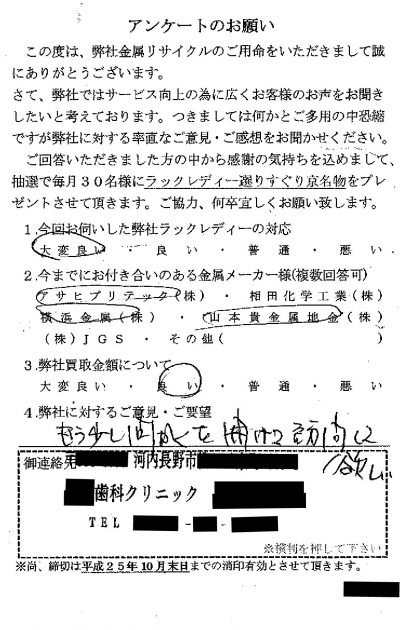 アンケートのお願い
この度は、弊社金属リサイクルのご用命をいただきまして誠
にありがとうございます。
さて、弊社ではサービス向上の為に広くお客様のお声をお聞き
したいと考えております。つきましては何かとご多用の中恐縮
ですが弊社に対する率直なご意見・ご感想をお聞かせください。
ご回答いただきました方の中から感謝の気持ちを込めまして、
抽選で毎月30名様にラックレディー選りすぐり京名物をプレ
ゼントさせて頂きます。ご協力、何卒宜しくお願い致します。
1.今回お伺いした弊社ラックレディーの対応
大変良い ・ 良い ・ 普通 ・ 悪い
2.今までにお付き合いのある金属メーカー様(複数回答可)
アサヒプリテック(株) ・ 相田化学工業(株)
横浜金属(株) ・ 山本貴金属地金(株)
(株)JGS ・ その他( )
3.弊社買取金額について
大変良い ・ 良い ・ 普通 ・ 悪い
4.弊社に対するご意見・ご要望
もう少し間かくを開けて訪問して
欲しい
御連絡先 河内長野市
歯科クリニック
TEL - -
※横判を押して下さい
※尚、締切は平成25年10月末日までの消印有効とさせて頂きます。